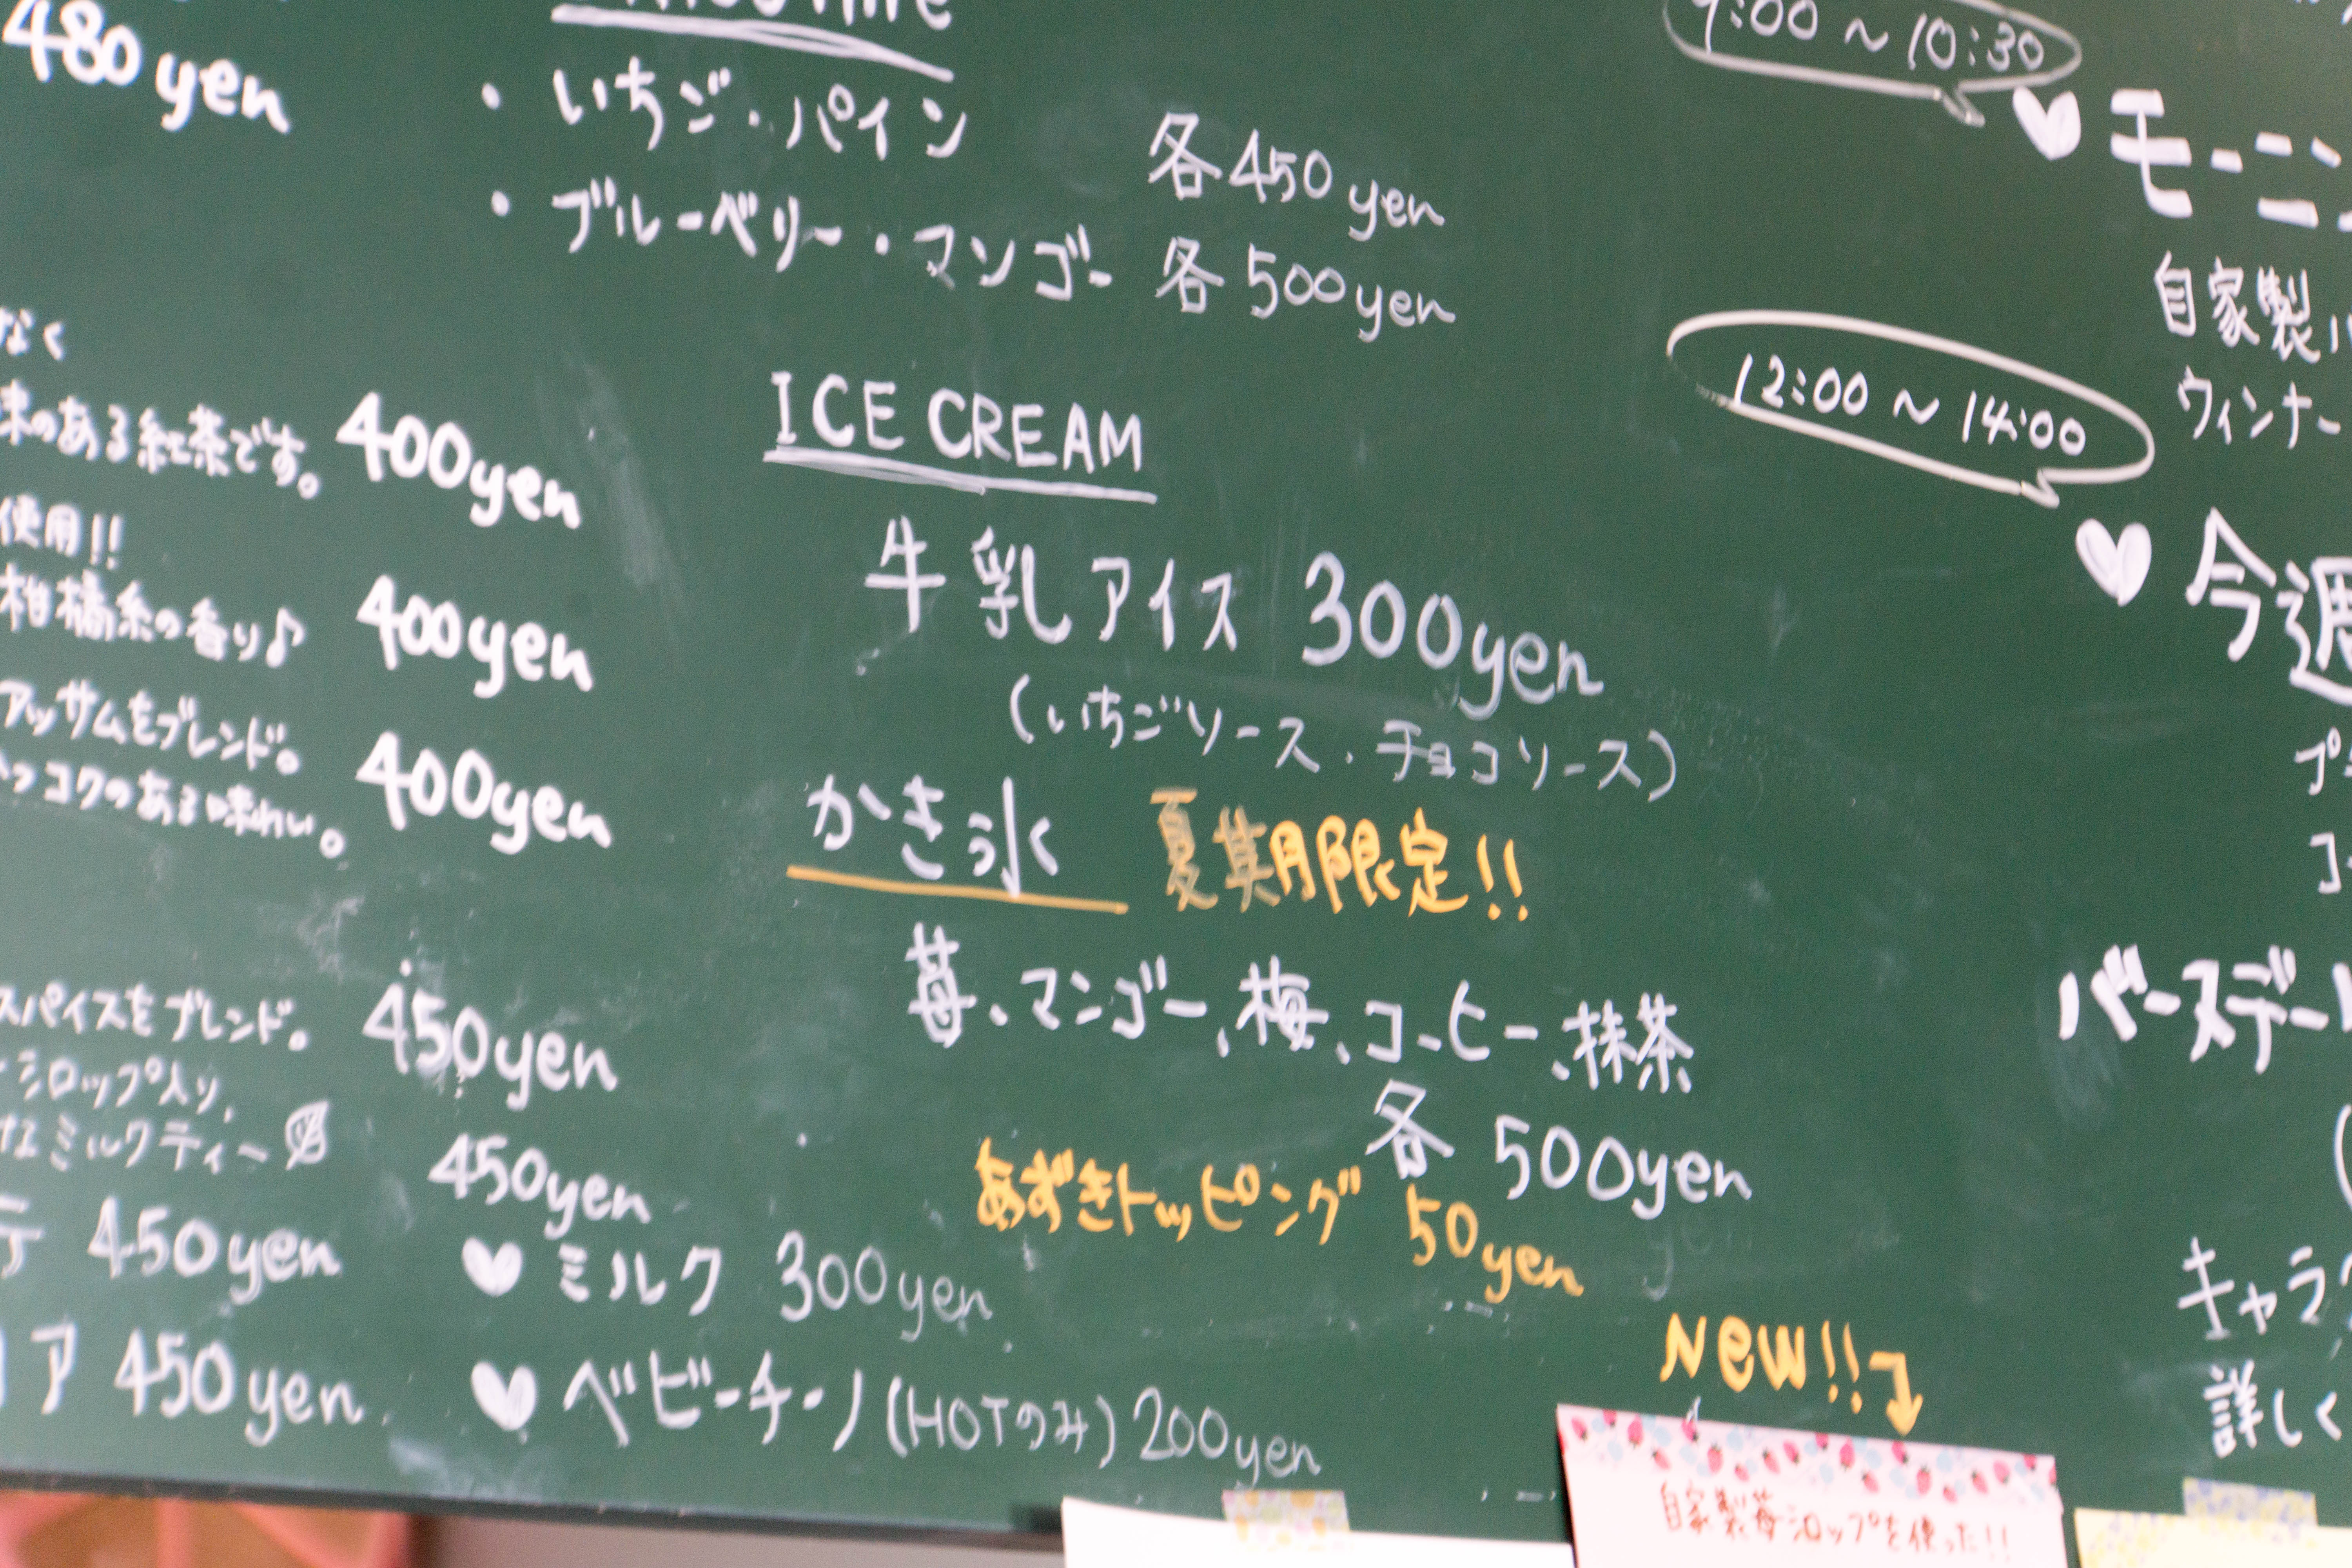 480 yen
・いちご・パイン 各450 yen
・ブルーベリー・マンゴー 各500yen
なく
味のある紅茶です。 400yen
使用!!
柑橘系の香り♪ 400yen
アッサムをブレンド。
コクのある味わい。 400yen
スパイスをブレンド。 450yen
シロップ入り、
ミルクティー 450yen
テ 450yen
ア 450yen
♥ ミルク 300yen
♥ ベビーチーノ(HOTのみ) 200yen
ICE CREAM
牛乳アイス 300yen
(いちごソース・チョコソース)
かき氷 夏期限定!!
苺、マンゴー、梅、コーヒー、抹茶
各 500yen
あずきトッピング 50yen
NEW!!
自家製苺シロップを使った!!
9:00～10:30
♥ モーニン
自家製
ウィンナー
12:00～14:00
♥ 今週
プ
コ
バースデー
(
キャラ
詳しく